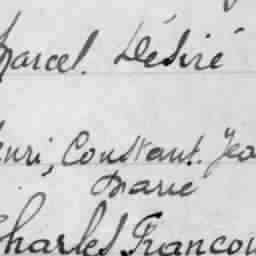 Marcel. Désiré
Henri, Constant. Jea
Marie
Charles Françoi